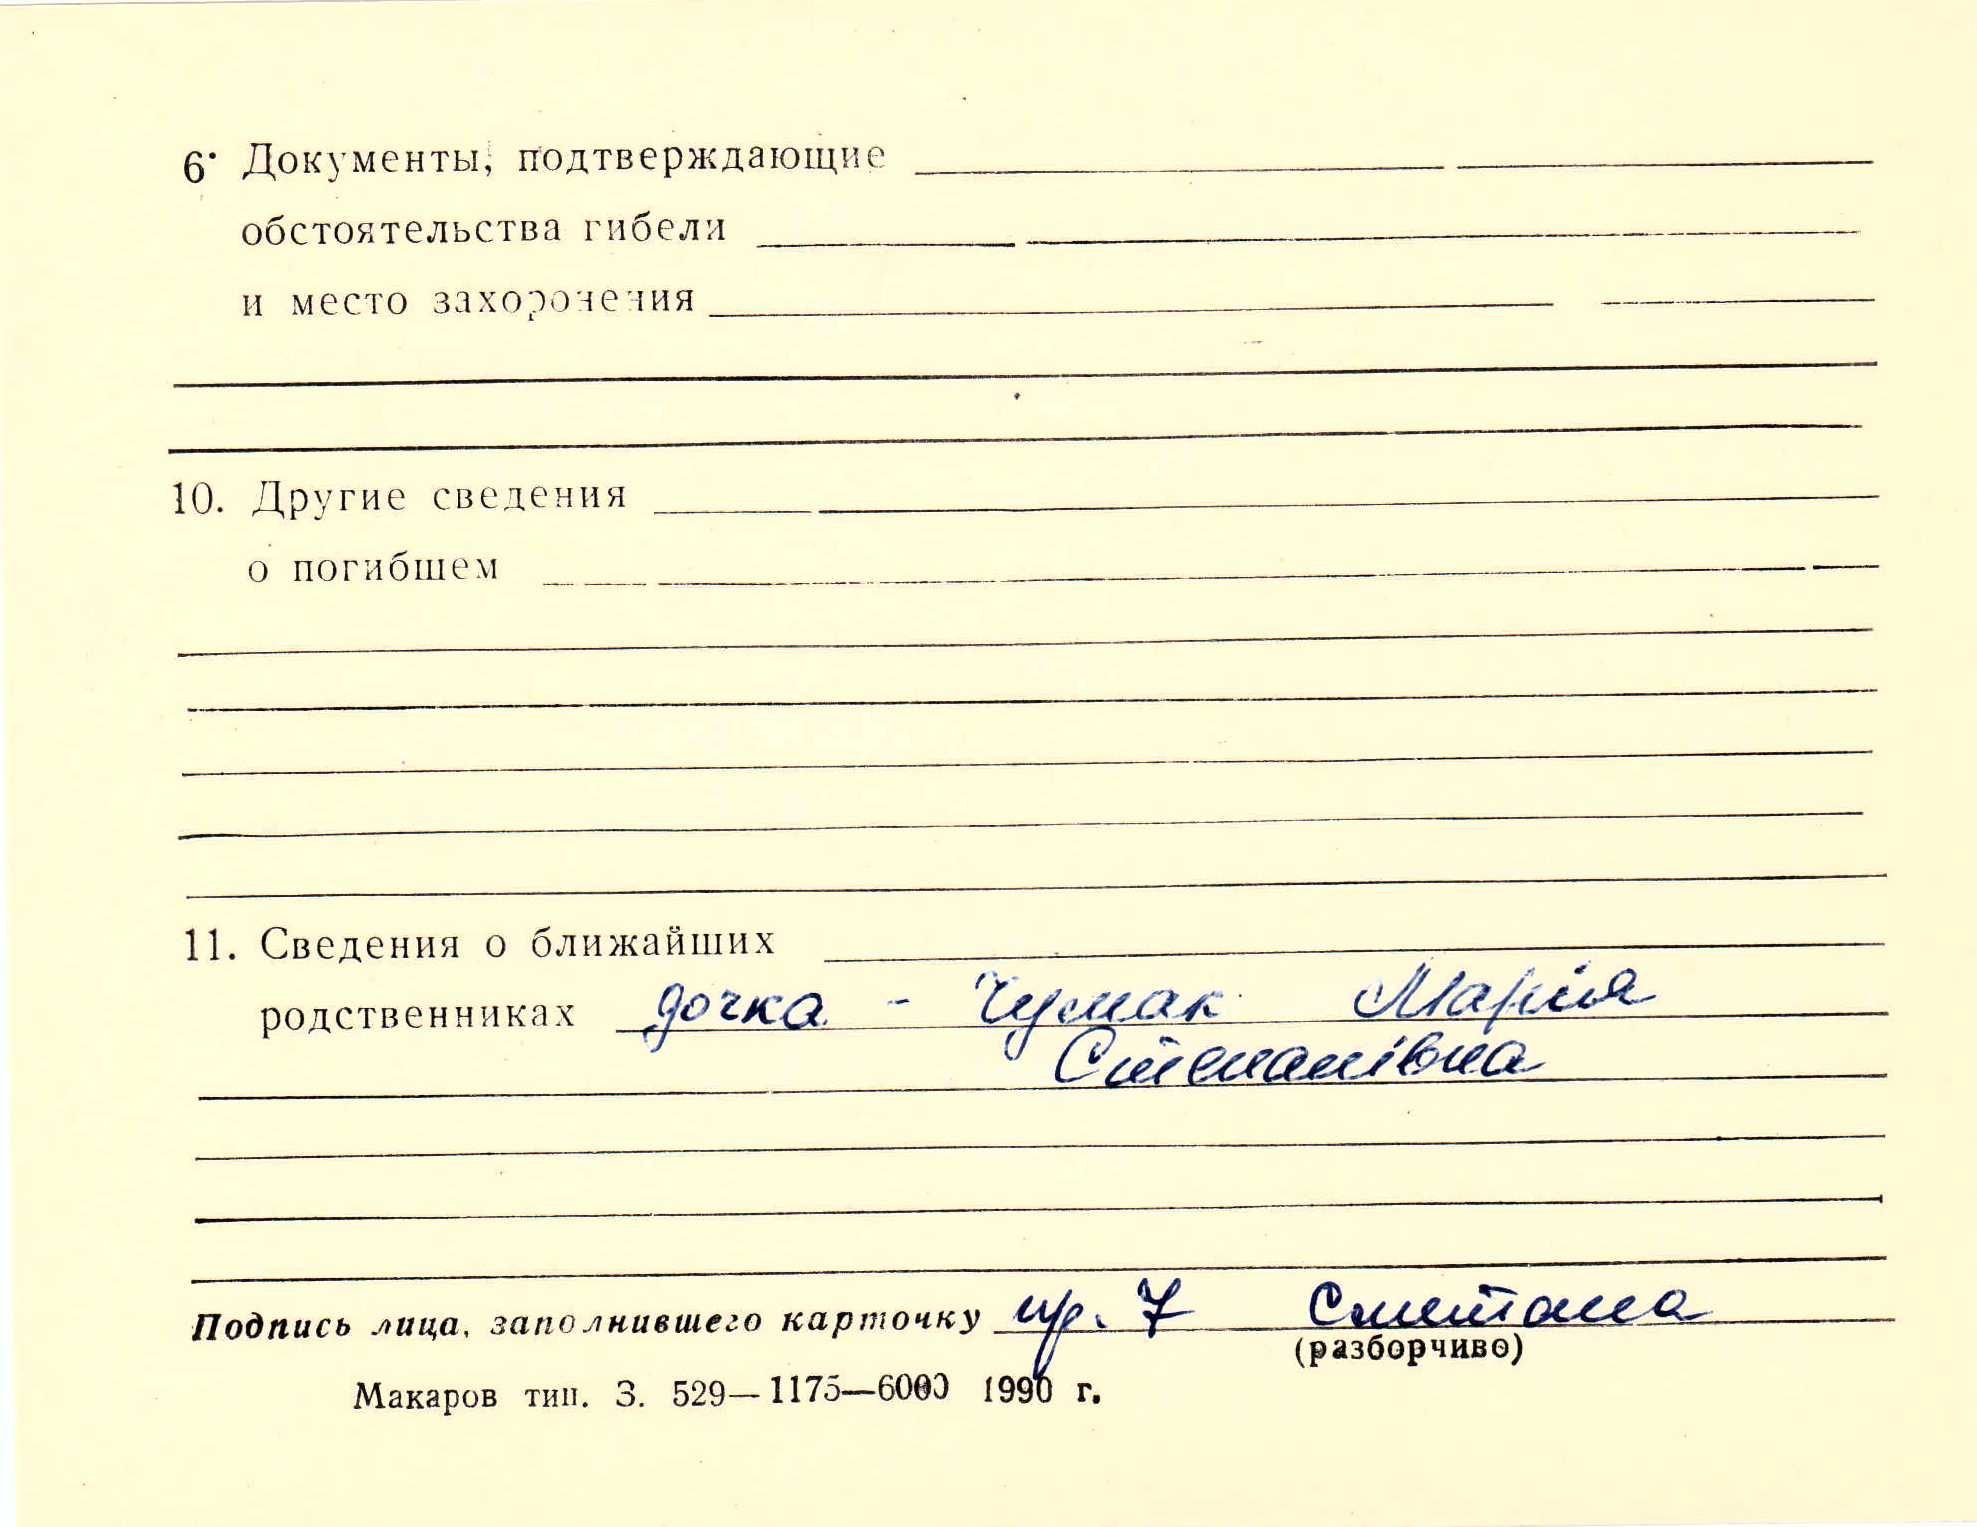 6. Документы, подтверждающие
обстоятельства гибели
и место захоронения
10. Другие сведения
о погибшем
11. Сведения о ближайших
родственниках дочка - Чумак Марія
Степанівна
Подпись лица, заполнившего карточку 7 Сметана
(разборчиво)
Макаров тип. З. 529—1175—6000 1990 г.